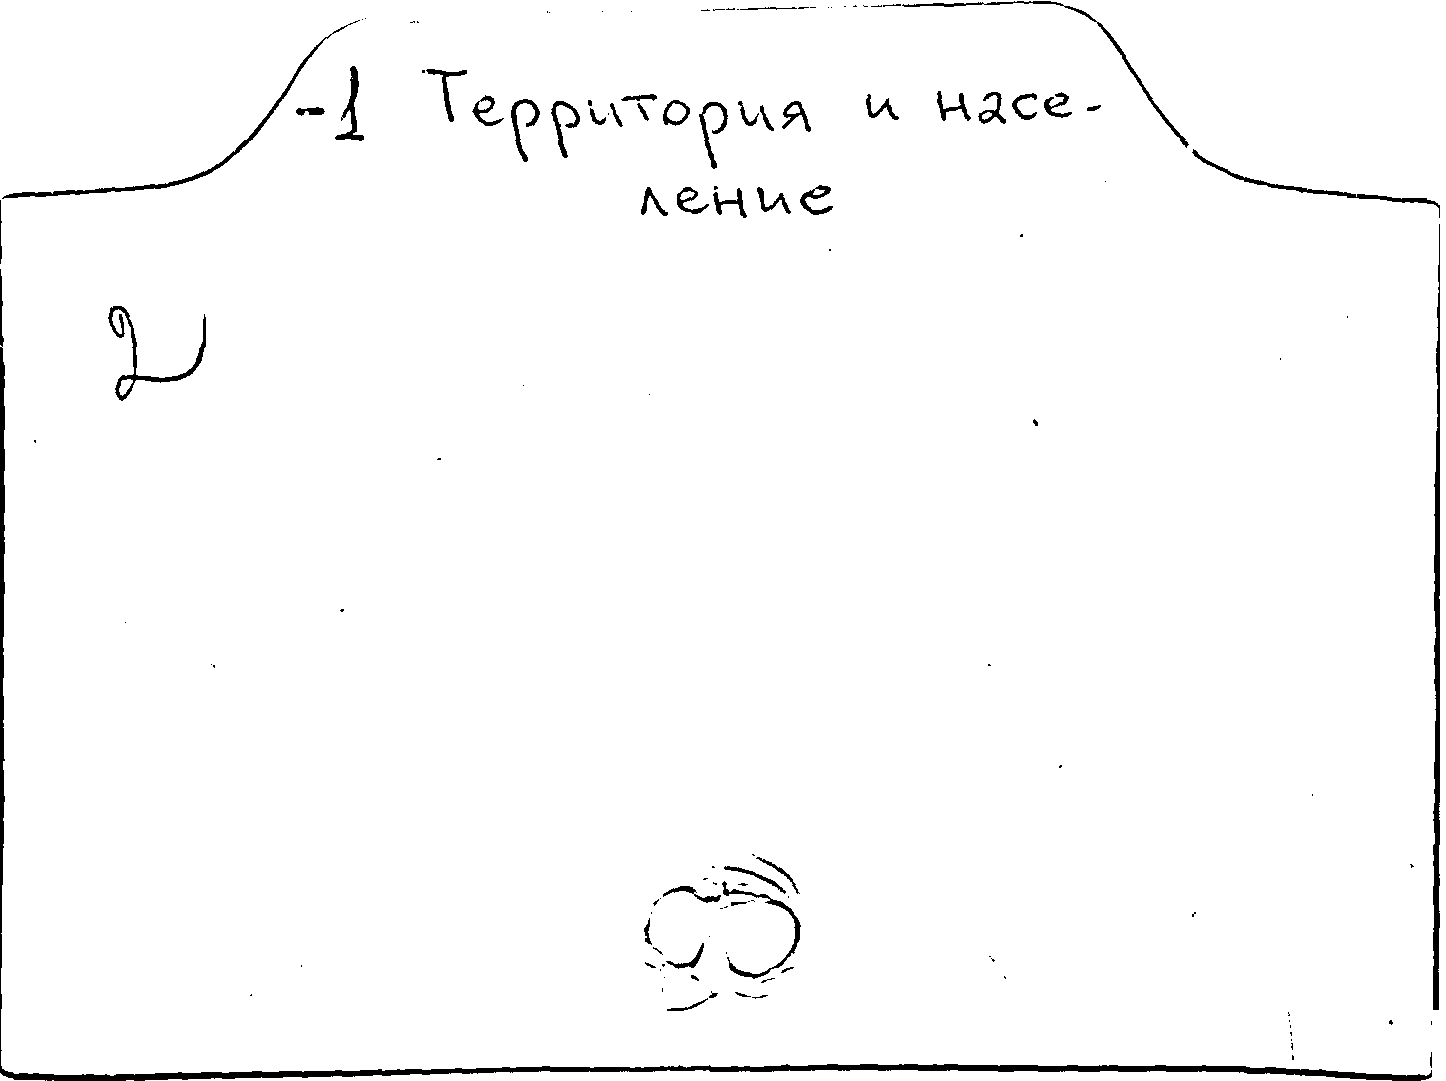 -1 Территория и насе-
ление
2